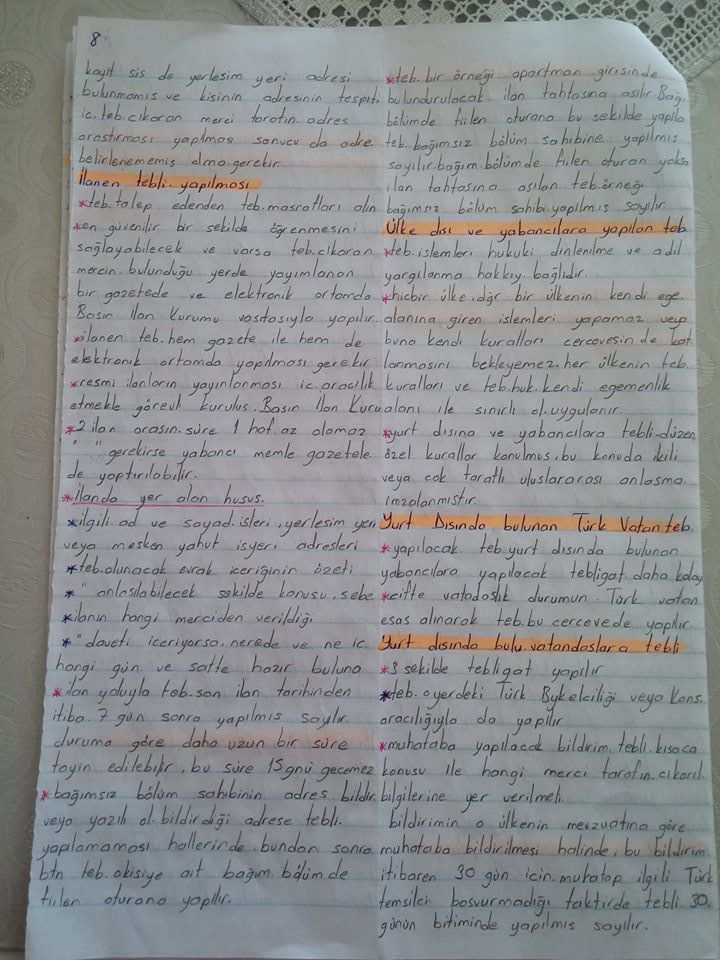 8
kayıt sis de yerleşim yeri adresi
bulunmamış ve kişinin adresinin tespiti
iç.teb.çıkaran merci tarafın.adres
araştırması yapılması sonucu da adre.
belirlenememiş olma.gerekir.
İlanen tebli.yapılması
*teb.talep edenden teb.masrafları alın
*en güvenilir bir şekilde öğrenmesini
sağlayabilecek ve varsa teb.çıkaran
mercin.bulunduğu yerde yayımlanan
bir gazetede ve elektronik ortamda
Basın İlan Kurumu vasıtasıyla yapılır.
*ilanen teb.hem gazete ile hem de
elektronik ortamda yapılması gerekir
*resmi ilanların yayınlanması iç.aracılık
etmekle görevli kuruluş.Basın İlan Kuru
*2 ilan arasın.süre 1 haf.az olamaz
" " gerekirse yabancı memle gazetele
de yaptırılabilir.
*İlanda yer alan husus.
*ilgili ad ve soyad.işleri,yerleşim yeri
veya mesken yahut işyeri adresleri
*teb.olunacak evrak içeriğinin özeti
*" anlaşılabilecek şekilde konusu,sebe
*ilanın hangi merciden verildiği
*" daveti içeriyorsa.nerede ve ne iç.
hangi gün ve saatte hazır buluna
*ilan yoluyla teb.son ilan tarihinden
itiba.7 gün sonra yapılmış sayılır.
duruma göre daha uzun bir süre
tayin edilebilir,bu süre 15gnü geçemez
*bağımsız bölüm sahibinin adres bildir.
veya yazılı ol.bildirdiği adrese tebli.
yapılamaması hallerinde,bundan sonra
btn teb.okişiye ait bağım.bölüm.de
fiilen oturana yapılır.
*teb.bir örneği apartman girişinde
bulundurulacak ilan tahtasına asılır.Bağı
bölümde fiilen oturana bu şekilde yapıla
teb.bağımsız bölüm sahibine yapılmış
sayılır.bağım.bölümde fiilen oturan yoksa
ilan tahtasına asılan teb.örneği
bağımsız bölüm sahibi yapılmış sayılır
Ülke dışı ve yabancılara yapılan teb
*teb.işlemleri hukuki dinlenilme ve adil
yargılanma hakkıy.bağlıdır.
*hiçbir ülke,dğr bir ülkenin kendi ege.
alanına giren işlemleri yapamaz veya
buna kendi kuralları çerçevesin.de kat
lanmasını bekleyemez.her ülkenin teb.
kuralları ve teb.huk.kendi egemenlik
alanı ile sınırlı ol.uygulanır.
*yurt dışına ve yabancılara tebli.düzen
özel kurallar konulmuş,bu konuda ikili
veya çok taraflı uluslararası anlaşma.
imzalanmıştır.
Yurt Dışında bulunan Türk Vatan.teb.
*yapılacak teb.yurt dışında bulunan
yabancılara yapılacak tebligat daha kolay
*çifte vatadaşlık durumun. Türk vatan
esas alınarak teb.bu çerçevede yapılır.
Yurt dışında bulu.vatandaşlara tebli
*3 şekilde tebligat yapılır
*teb.oyerdeki Türk Bykelçiliği veya Kons.
aracılığıyla da yapılır
*muhataba yapılacak bildirim.tebli.kısaca
konusu ile hangi merci tarafın.çıkarıl.
bilgilerine yer verilmeli.
bildirimin o ülkenin mevzuatına göre
muhataba bildirilmesi halinde,bu bildirim.
itibaren 30 gün için.muhatap ilgili Türk
temsilci başvurmadığı taktirde tebli.30.
günün bitiminde yapılmış sayılır.